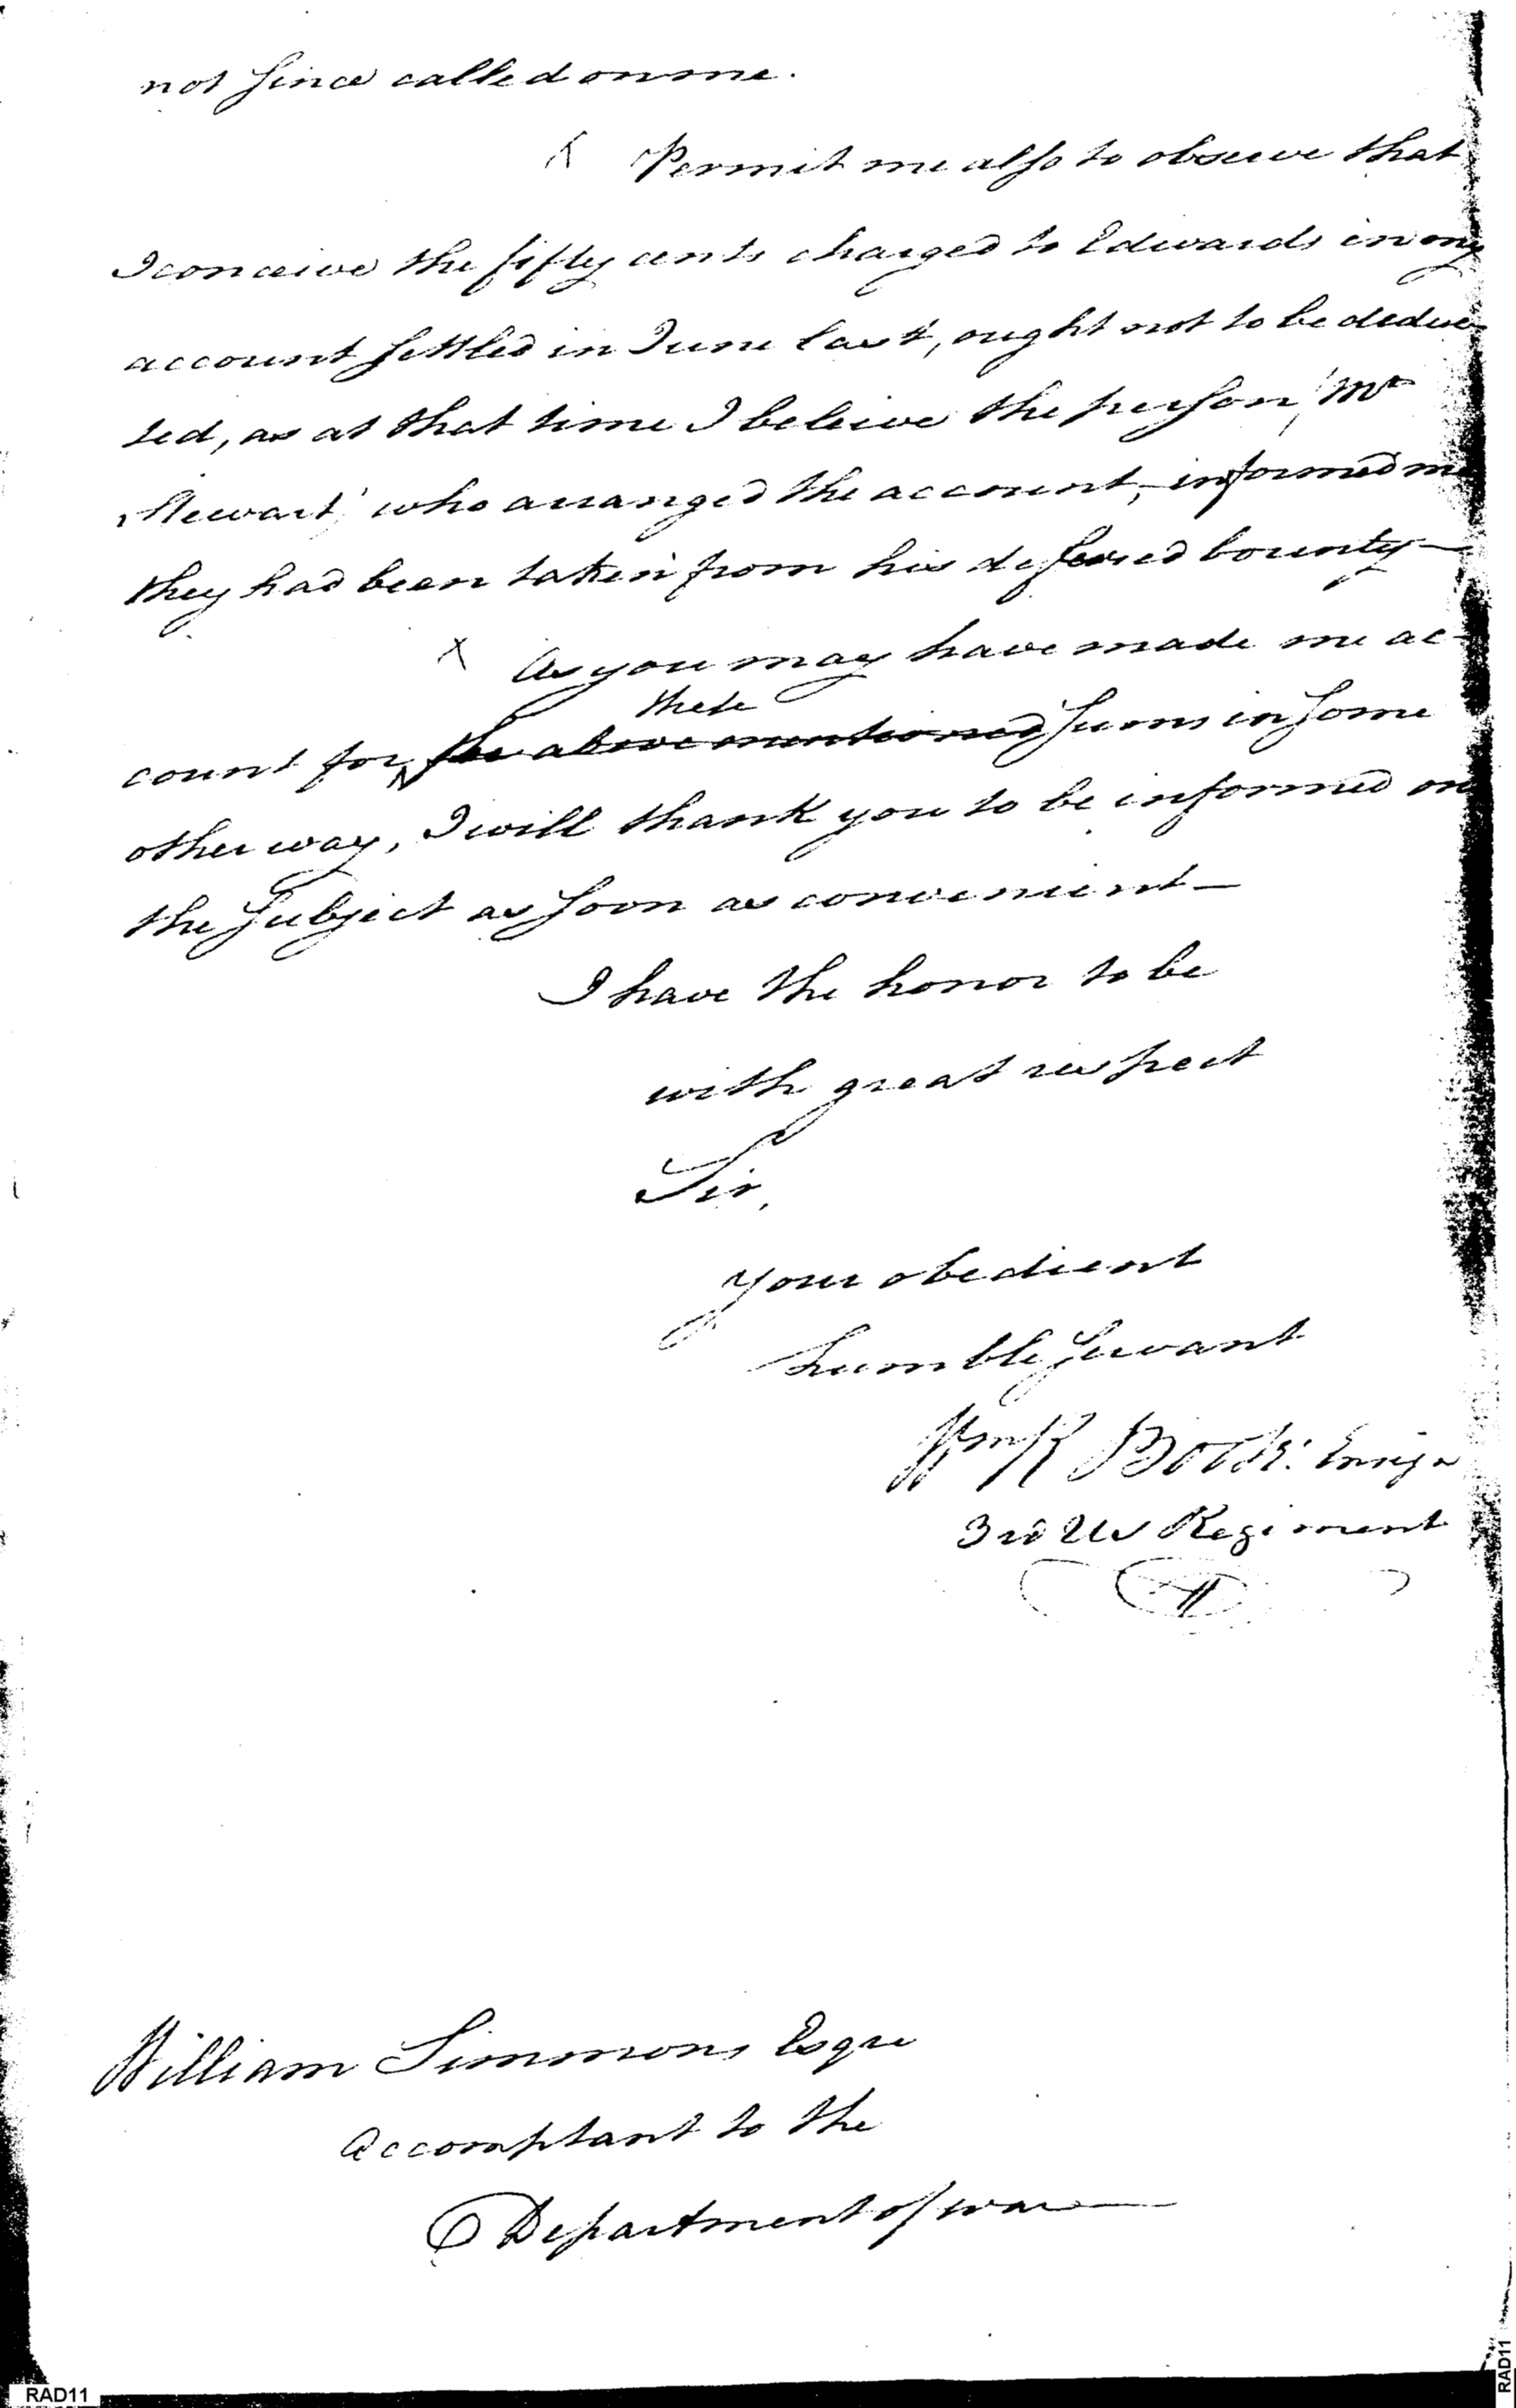 not since called on me.
X Permit me also to observe that
I conceive the fifty cents charged to Edwards in my
account settled in June last, ought not to be deduc
ted, as at that time I beleive the person, 'Mr
Stewart' who arranged the account, informed me
they had been taken from his deferred bounty—
X As you may have made me ac-
these
count for the above mentioned sums in some
other way, I will thank you to be informed on
the subject as soon as convenient—
I have the honor to be
with great respect
Sir,
your obedient
humble servant
Wm R Boote: Ensign
3rd US Regiment
William Simmons Esqre
Accomptant to the
Department of war
RAD11
RAD11